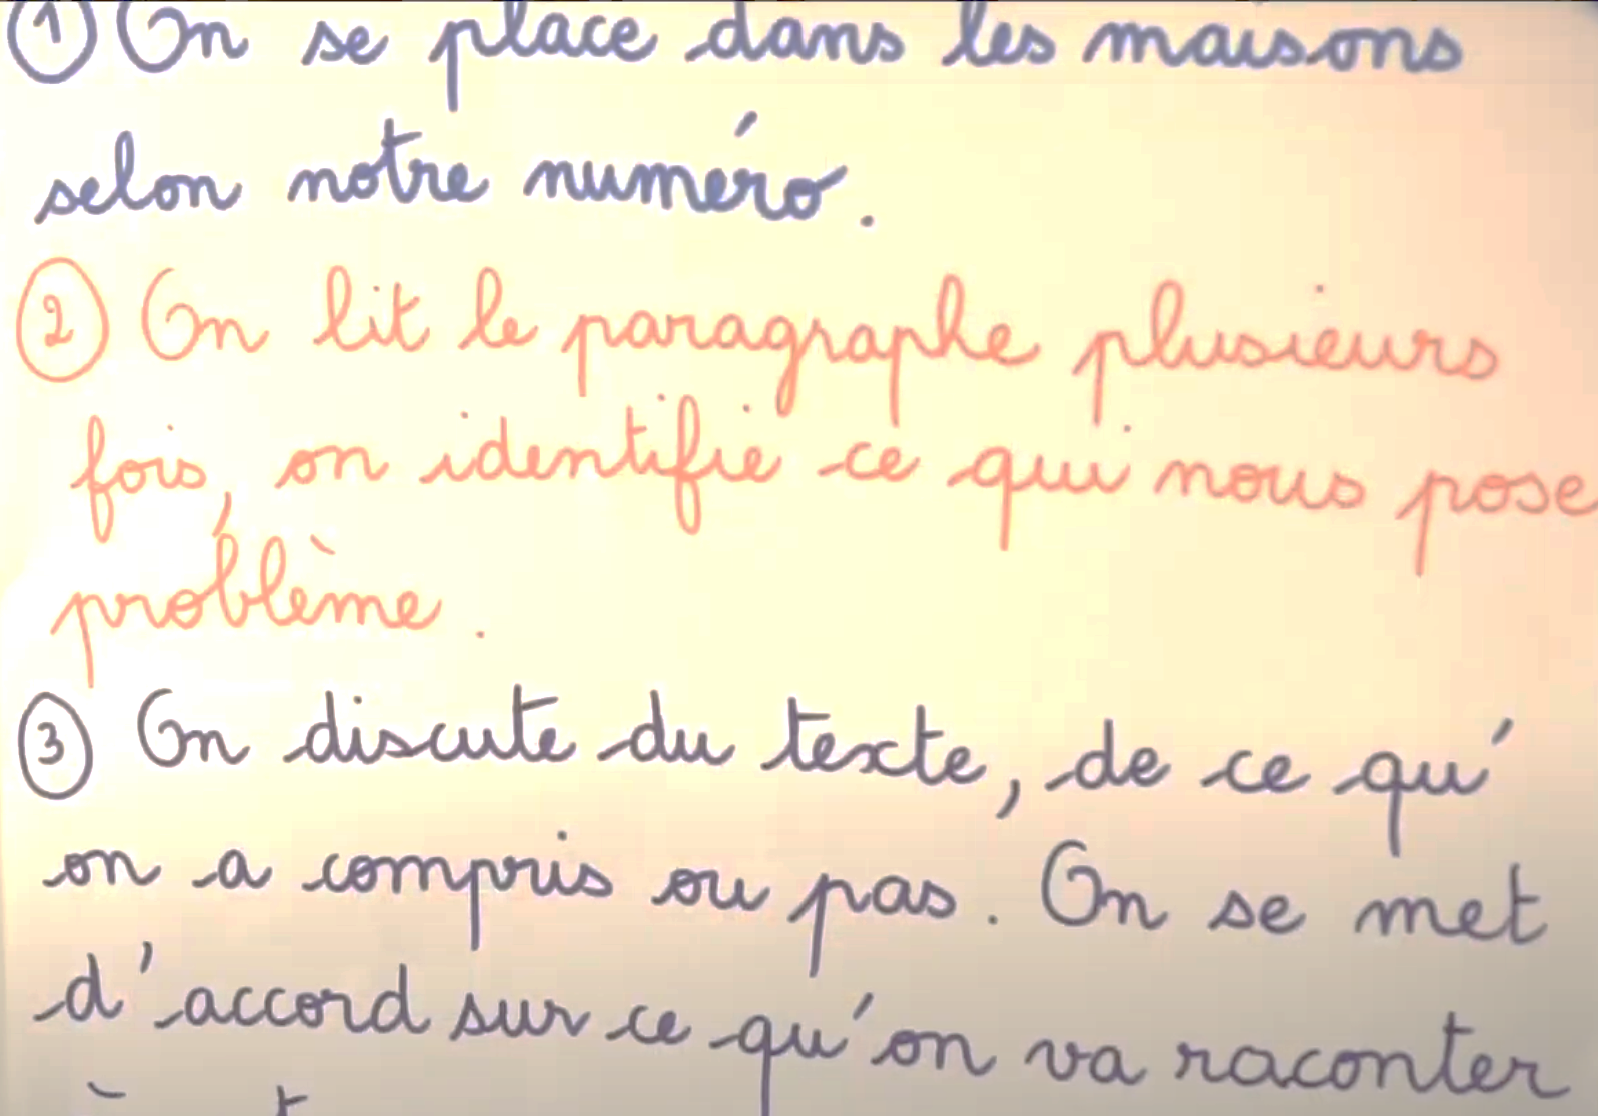 ① On se place dans les maisons
selon notre numéro.
② On lit le paragraphe plusieurs
fois, on identifie ce qui nous pose
problème.
③ On discute du texte, de ce qu'
on a compris ou pas. On se met
d'accord sur ce qu'on va raconter